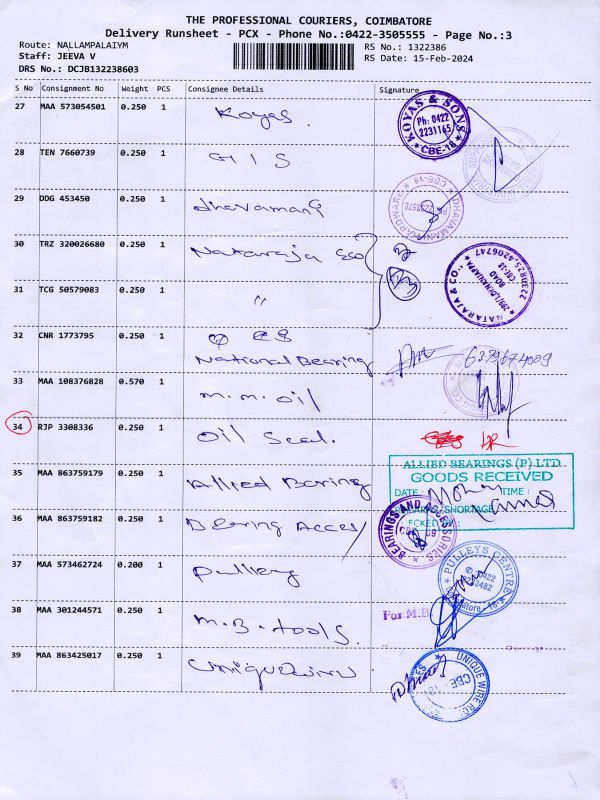 THE PROFESSIONAL COURIERS, COIMBATORE
Delivery Runsheet - PCX - Phone No.:0422-3505555 - Page No.:3
Route: NALLAMPALAIYM RS No.: 1322386
Staff: JEEVA V RS Date: 15-Feb-2024
DRS No.: DCJB132238603
S No Consignment No Weight PCS Consignee Details Signature
27 MAA 573054501 0.250 1 Koyas.
KOYAS & SONS Ph: 0422 2231165 * CBE-18 *
28 TEN 7660739 0.250 1 GIS
29 DDG 453450 0.250 1 dhavamani
DHAVAMANI HARDWARE CBE-18
30 TRZ 320026680 0.250 1 Nataraja &co
NATARAJA & CO., ROAD CBE-18
31 TCG 50579083 0.250 1 "
32 CNR 1773795 0.250 1
National Bearing 6379674009
33 MAA 108376828 0.570 1 m.m.oil
34 RJP 3308336 0.250 1 Oil Seal.
ALLIED BEARINGS (P) LTD
GOODS RECEIVED
35 MAA 863759179 0.250 1 Allied Bering
DATE: TIME:
SHORTAGE
36 MAA 863759182 0.250 1 Bearing Access
BEARINGS AND ACCESSORIES
37 MAA 573462724 0.200 1 pulley
PULLEYS CENTRE
38 MAA 301244571 0.250 1 M.B.tools.
For M.B
39 MAA 863425017 0.250 1
UNIQUE WIRE CBE